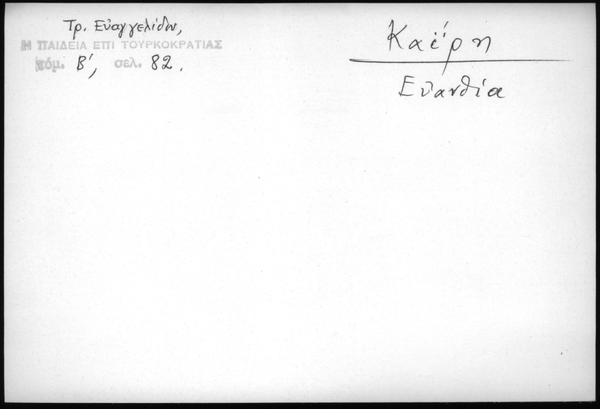 Τρ. Εὐαγγελίδου,
Η ΠΑΙΔΕΙΑ ΕΠΙ ΤΟΥΡΚΟΚΡΑΤΙΑΣ
τόμ. Β', σελ. 82.
Καΐρη
Εὐανθία